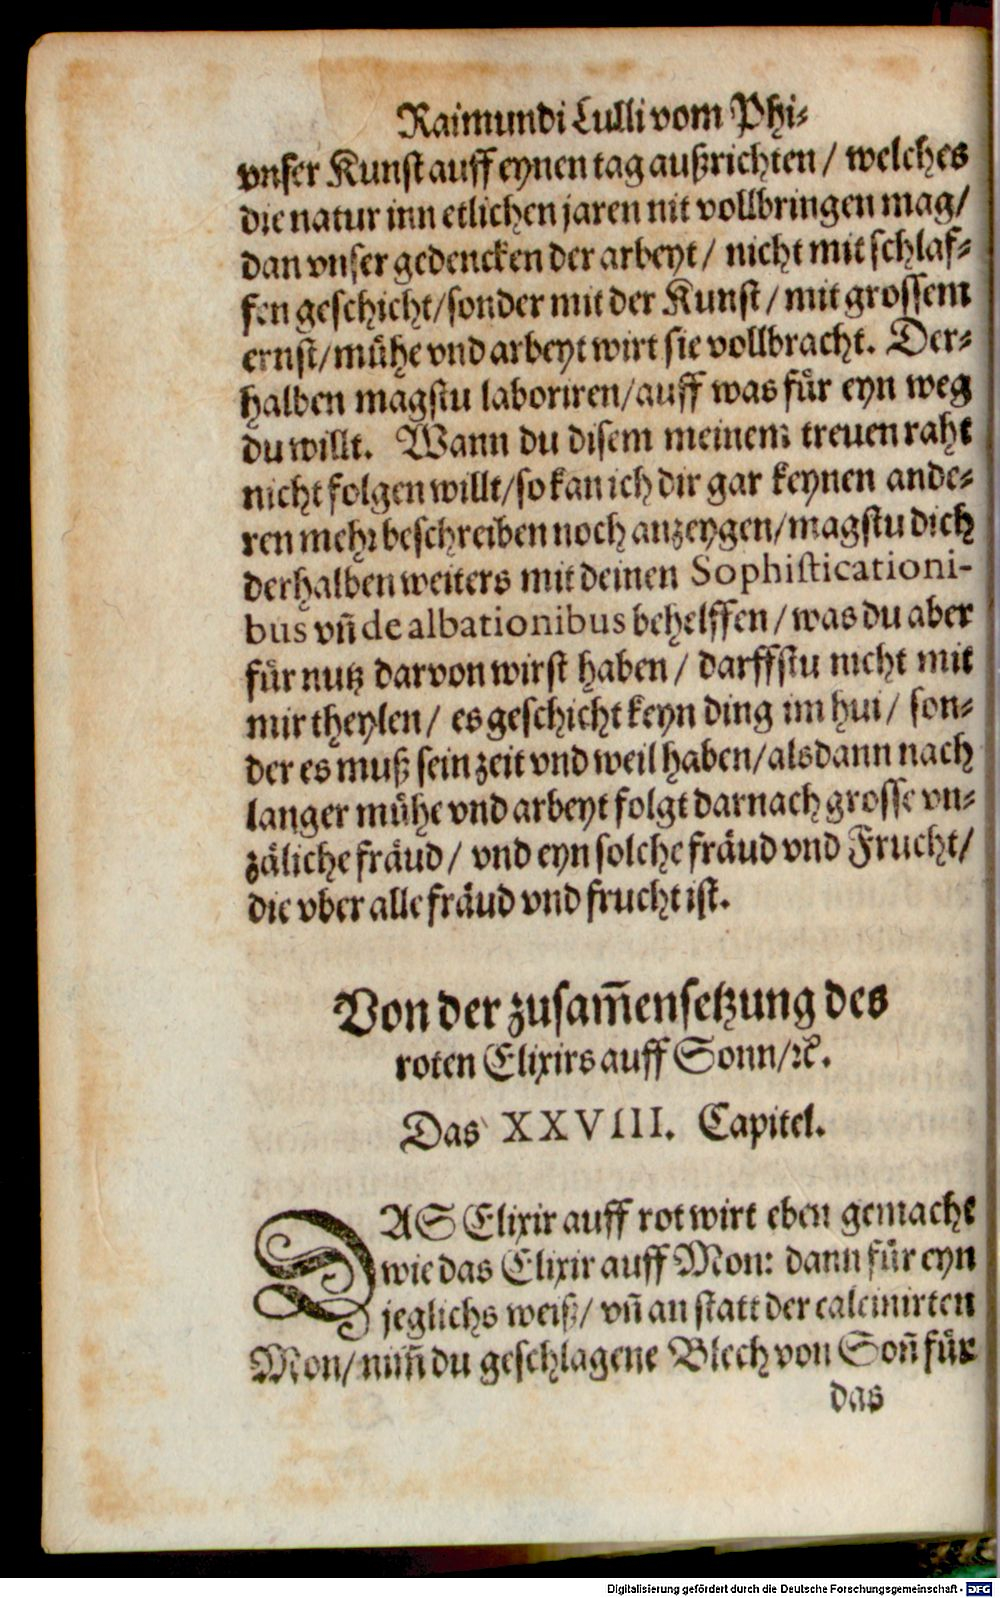 Raimundi Lulli vom Phi⸗
vnser Kunst auff eynen tag außrichten/ welches
die natur inn etlichen jaren nit vollbringen mag/
dan vnser gedencken der arbeyt/ nicht mit schlaf⸗
fen geschicht/ sonder mit der Kunst/ mit grossem
ernst/ mühe vnd arbeyt wirt sie vollbracht. Der⸗
halben magstu laboriren/ auff was für eyn weg
du willt. Wann du disem meinem treuen raht
nicht folgen willt/ so kan ich dir gar keynen ande⸗
ren mehr beschreiben noch anzeygen/ magstu dich
derhalben weiters mit deinen Sophisticationi-
bus vñ de albationibus behelffen/ was du aber
für nutz darvon wirst haben/ darffstu nicht mit
mir theylen/ es geschicht keyn ding im hui/ son⸗
der es muß sein zeit vnd weil haben/ alsdann nach
langer mühe vnd arbeyt folgt darnach grosse vn⸗
zäliche fräud/ vnd eyn solche fräud vnd Frucht/
die vber alle fräud vnd frucht ist.
Von der zusam̃ensetzung des
roten Elixirs auff Sonn/ ꝛc.
Das XXVIII. Capitel.
DAS Elixir auff rot wirt eben gemacht
wie das Elixir auff Mon: dann für eyn
jeglichs weiß/ vñ an statt der calcinirten
Mon/ nim̃ du geschlagene Blech von Soñ für
das
Digitalisierung gefördert durch die Deutsche Forschungsgemeinschaft - DFG